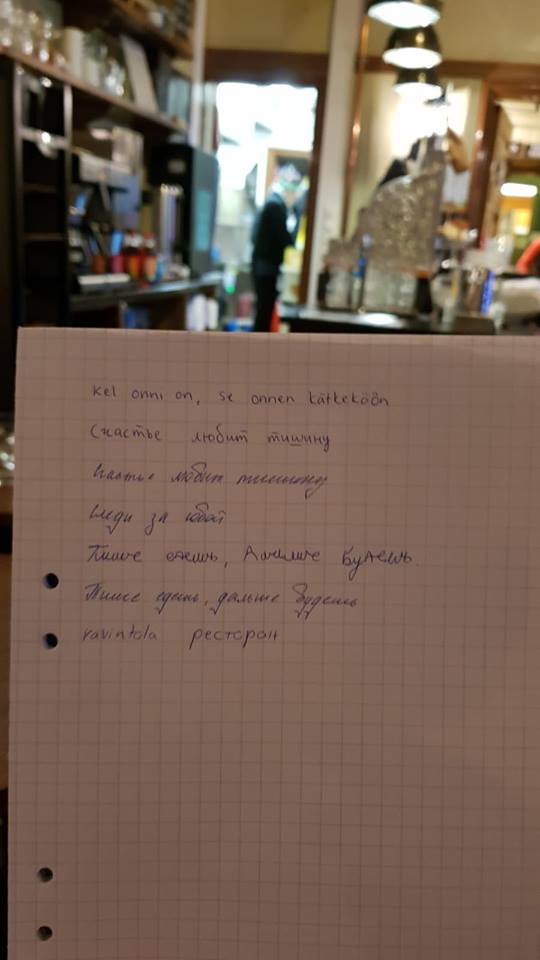 Kel onni on, se onnen kätkeköön
Счастье любит тишину
Счастье любит тишину
Следи за собой
Тише едешь, дальше будешь.
Тише едешь, дальше будешь
ravintola ресторан